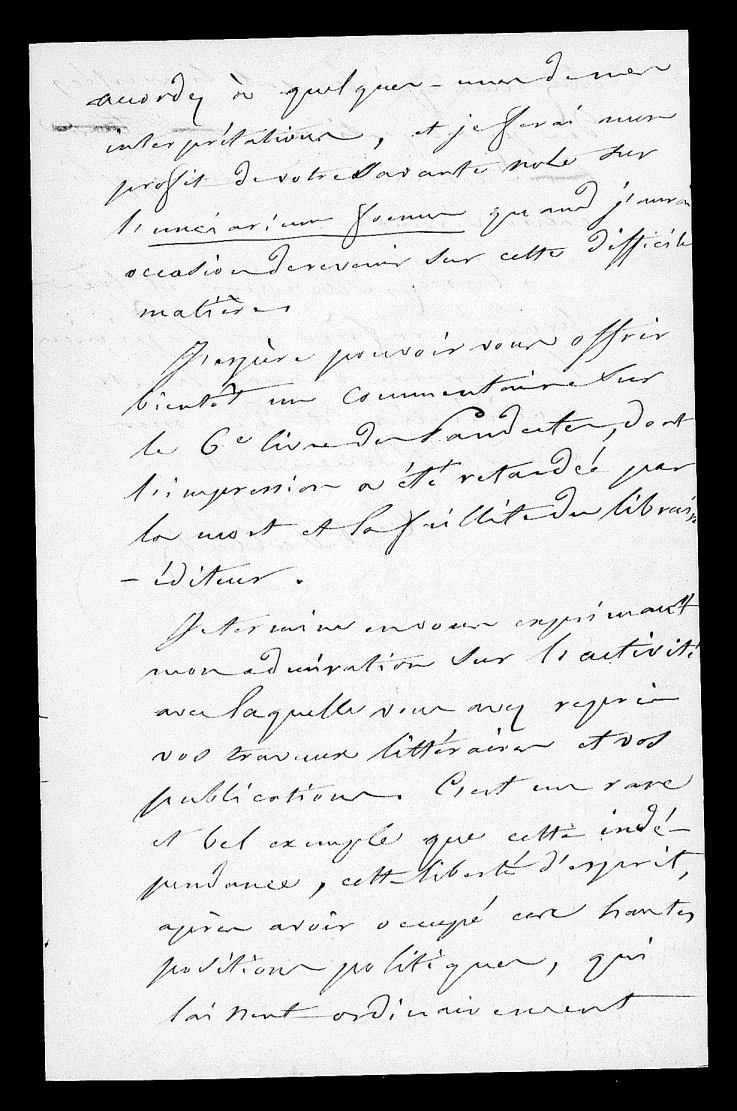 accordez à quelques-unes de mes
interprétations, et je ferai mon
profit de votre savante note sur
l'unciarium foenus quand j'aurai
occasion de revenir sur cette difficile
matière.
J'espère pouvoir vous offrir
bientôt un commentaire sur
le 6e livre des Pandectes, dont
l'impression a été retardée par
la mort et la faillite du libraire
-éditeur.
Je termine en vous exprimant
mon admiration sur l'activité
avec laquelle vous avez repris
vos travaux littéraires et vos
publications. C'est un rare
et bel exemple que cette indé-
pendance, cette liberté d'esprit,
après avoir occupé ces hautes
positions politiques, qui
laissent ordinairement